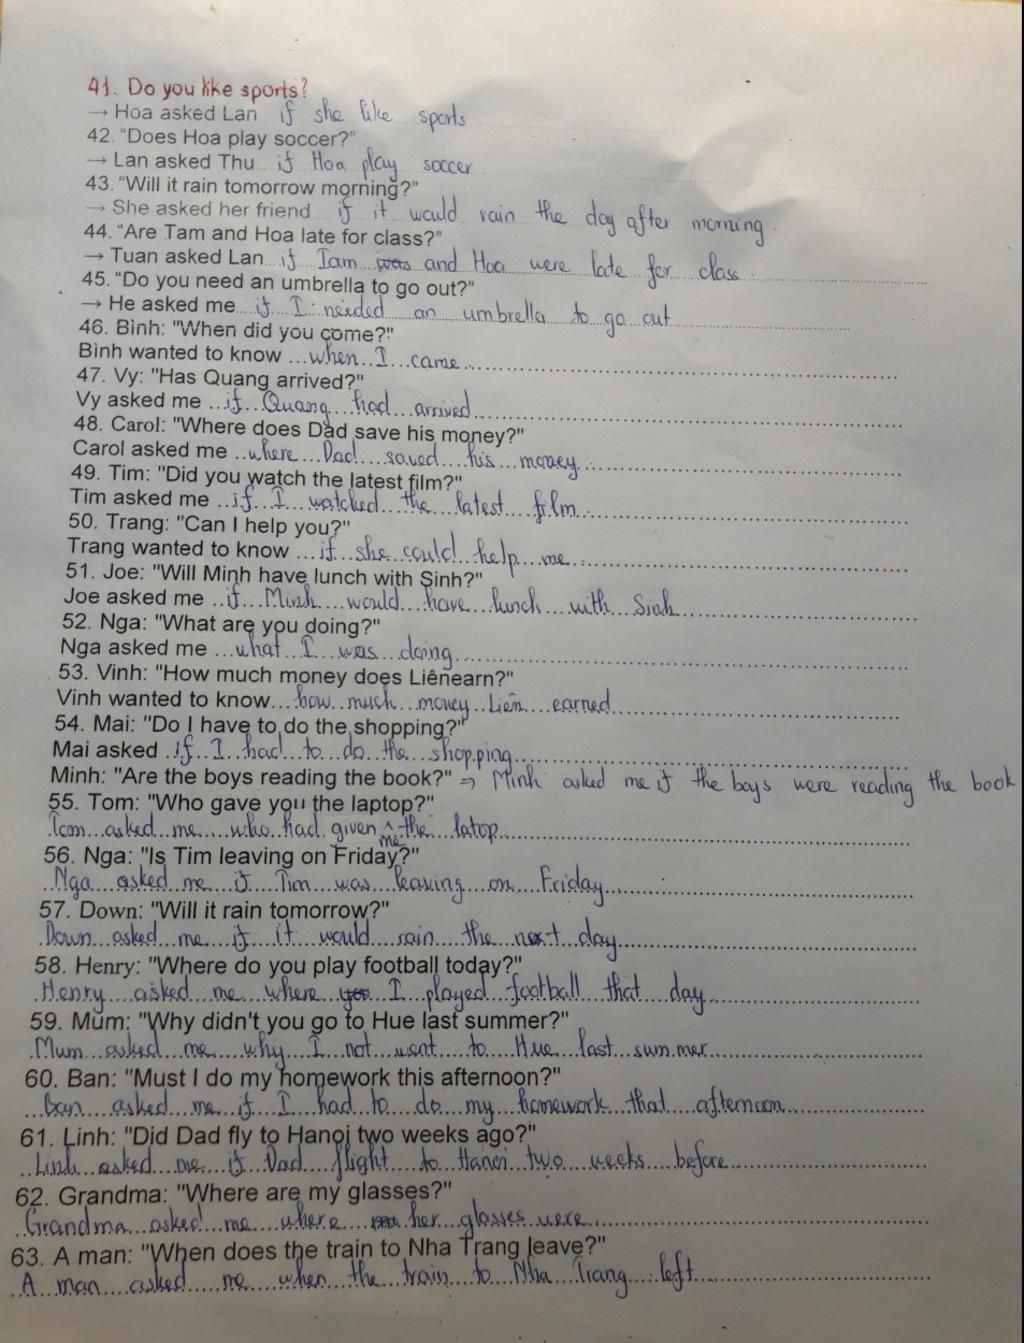 41. Do you like sports?
→ Hoa asked Lan if she like sports
42. “Does Hoa play soccer?”
→ Lan asked Thu if Hoa play soccer
43. “Will it rain tomorrow morning?”
→ She asked her friend if it would rain the day after morning.
44. “Are Tam and Hoa late for class?”
→ Tuan asked Lan if Tam was and Hoa were late for class
45. “Do you need an umbrella to go out?”
→ He asked me if I needed an umbrella to go out
46. Bình: "When did you come?"
Bình wanted to know ...when I came
47. Vy: "Has Quang arrived?"
Vy asked me ...if Quang had arrived
48. Carol: "Where does Dad save his money?"
Carol asked me ..where Dad saved his money
49. Tim: "Did you watch the latest film?"
Tim asked me ...if I watched the latest film
50. Trang: "Can I help you?"
Trang wanted to know ...if she could help me
51. Joe: "Will Minh have lunch with Sinh?"
Joe asked me ..if Minh would have lunch with Sinh
52. Nga: "What are you doing?"
Nga asked me ...what I was doing
53. Vinh: "How much money does Liênearn?"
Vinh wanted to know...how much money Liên earned
54. Mai: "Do I have to do the shopping?"
Mai asked .if I had to do the shopping
Minh: "Are the boys reading the book?" => Minh asked me if the boys were reading the book
55. Tom: "Who gave you the laptop?"
Tom asked me who had given me the latop
56. Nga: "Is Tim leaving on Friday?"
Nga asked me if Tim was leaving on Friday
57. Down: "Will it rain tomorrow?"
Down asked me if it would rain the next day
58. Henry: "Where do you play football today?"
Henry asked me where you I played football that day
59. Mum: "Why didn't you go to Hue last summer?"
Mum asked me why I not went to Hue last summer
60. Ban: "Must I do my homework this afternoon?"
Ban asked me if I had to do my homework that afternoon
61. Linh: "Did Dad fly to Hanoi two weeks ago?"
Linh asked me if Dad flight to Hanoi two weeks before
62. Grandma: "Where are my glasses?"
Grandma asked me where her glasses were
63. A man: "When does the train to Nha Trang leave?"
A man asked me when the train to Nha Trang left